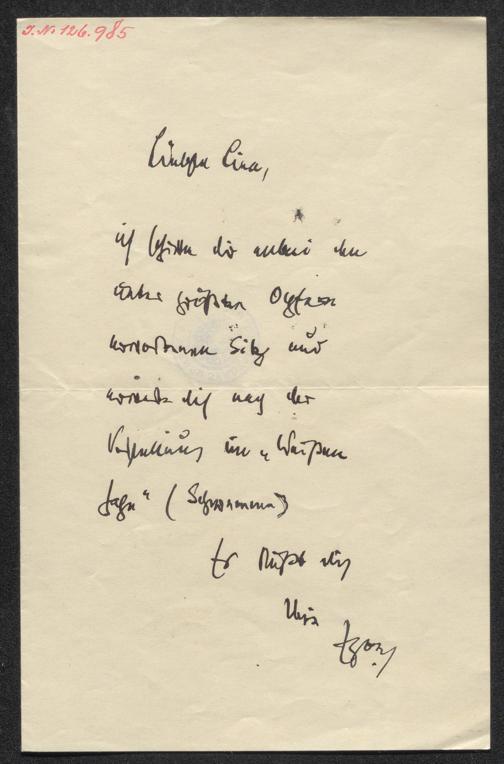 J.N. 126.985
Liebste Lina,
ich schicke dir anbei den
unter größten Opfern
erworbenen Sitz und
erwarte dich nach der
Vorstellung im „Weißen
Hahn" (Schwemme)
Es küßt dich
Egon